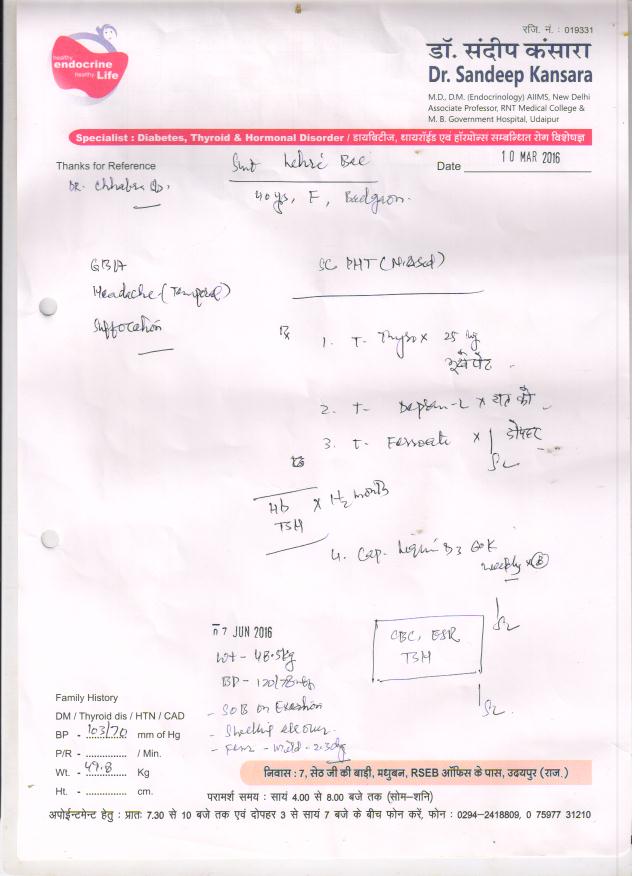 रजि. नं. : 019331
healthy
endocrine
healthy Life
डॉ. संदीप कंसारा
Dr. Sandeep Kansara
M.D., D.M. (Endocrinology) AIIMS, New Delhi
Associate Professor, RNT Medical College &
M. B. Government Hospital, Udaipur
Specialist : Diabetes, Thyroid & Hormonal Disorder / डायबिटीज, थायरॉईड एवं हॉरमोन्स सम्बन्धित रोग विशेषज्ञ
Thanks for Reference
Dr. Chhabra
Smt
Date 10 MAR 2016
40 ys, F,
GBA
Headache (Temporal)
Suffocation
SC PHT
Rx
1. T- Thyrox 25
2. T-
3. T-
Hb
TSH
4. Cap.
weekly x 8
CBC, ESR
TSH
07 JUN 2016
Wt - 48.5kg
BP - 120/78
- SOB on Exertion
-
-
Family History
DM / Thyroid dis / HTN / CAD
BP - 103/70 mm of Hg
P/R - .............. / Min.
Wt. - 49.8 Kg
Ht. - .............. cm.
निवास : 7, सेठ जी की बाड़ी, मधुबन, RSEB ऑफिस के पास, उदयपुर (राज.)
परामर्श समय : सायं 4.00 से 8.00 बजे तक (सोम-शनि)
अपोईन्टमेन्ट हेतु : प्रातः 7.30 से 10 बजे तक एवं दोपहर 3 से सायं 7 बजे के बीच फोन करें, फोन : 0294-2418809, 0 75977 31210